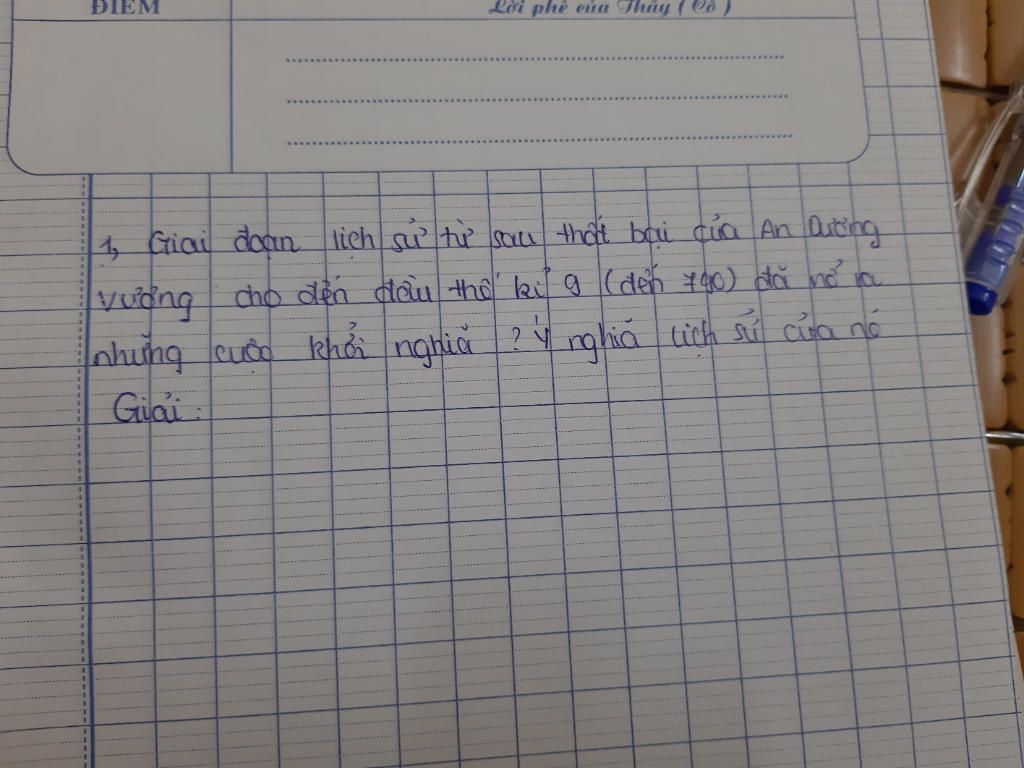 ĐIỂM
Lời phê của Thầy (Cô)
1, Giai đoạn lịch sử từ sau thất bại của An Dương
Vương cho đến đầu thế kỉ 9 (đến 790) đã nổ ra
những cuộc khởi nghĩa ? Ý nghĩa lịch sử của nó
Giải :